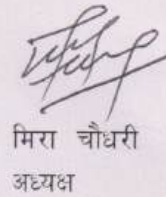 मिरा चौधरी
अध्यक्ष